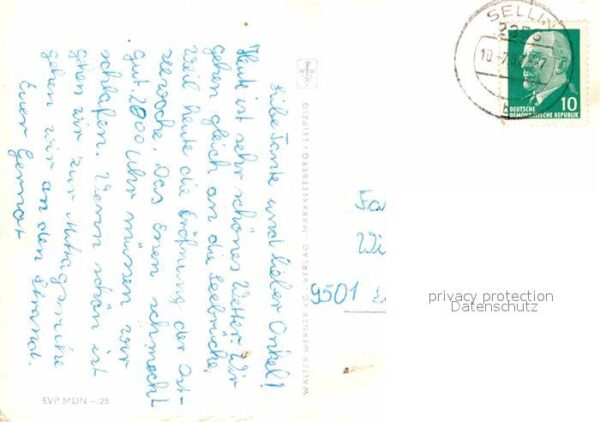 Liebe Tante und lieber Onkel!
Heute ist sehr schönes Wetter. Wir
gehen gleich an die Seebrücke,
weil heute die Eröffnung der Ost-
seewoche. Das Essen schmeckt
gut. 2000 Uhr müssen wir
schlafen. Wenn schön ist
gehen wir zur Mittagsruhe
gehen wir an den Strand.
Euer Gernot
EVP MDN -.25
WALTER WERNER KG. · VERLAG · MARKKLEEBERG - LEIPZIG
SELLIN
10
DEUTSCHE
DEMOKRATISCHE REPUBLIK
Fa
Wi
9501
privacy protection
Datenschutz